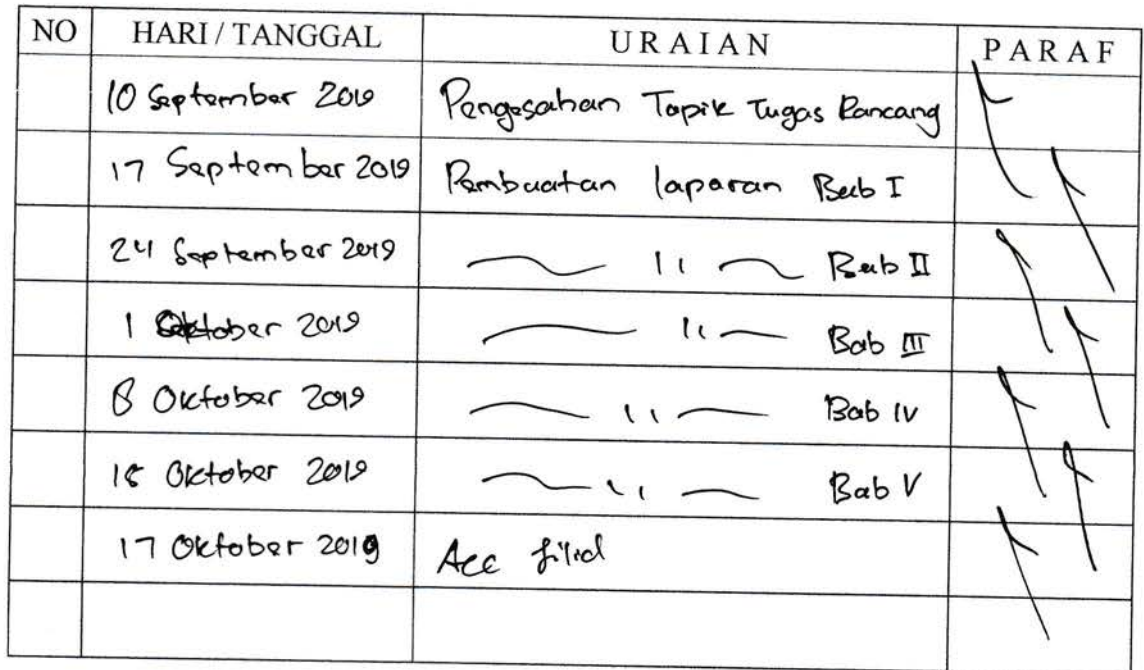 NO HARI / TANGGAL URAIAN PARAF
10 September 2019 Pengesahan Topik Tugas Rancang
17 September 2019 Pembuatan laporan Bab I
24 September 2019 〃 Bab II
1 Oktober 2019 〃 Bab III
8 Oktober 2019 〃 Bab IV
15 Oktober 2019 〃 Bab V
17 Oktober 2019 Acc